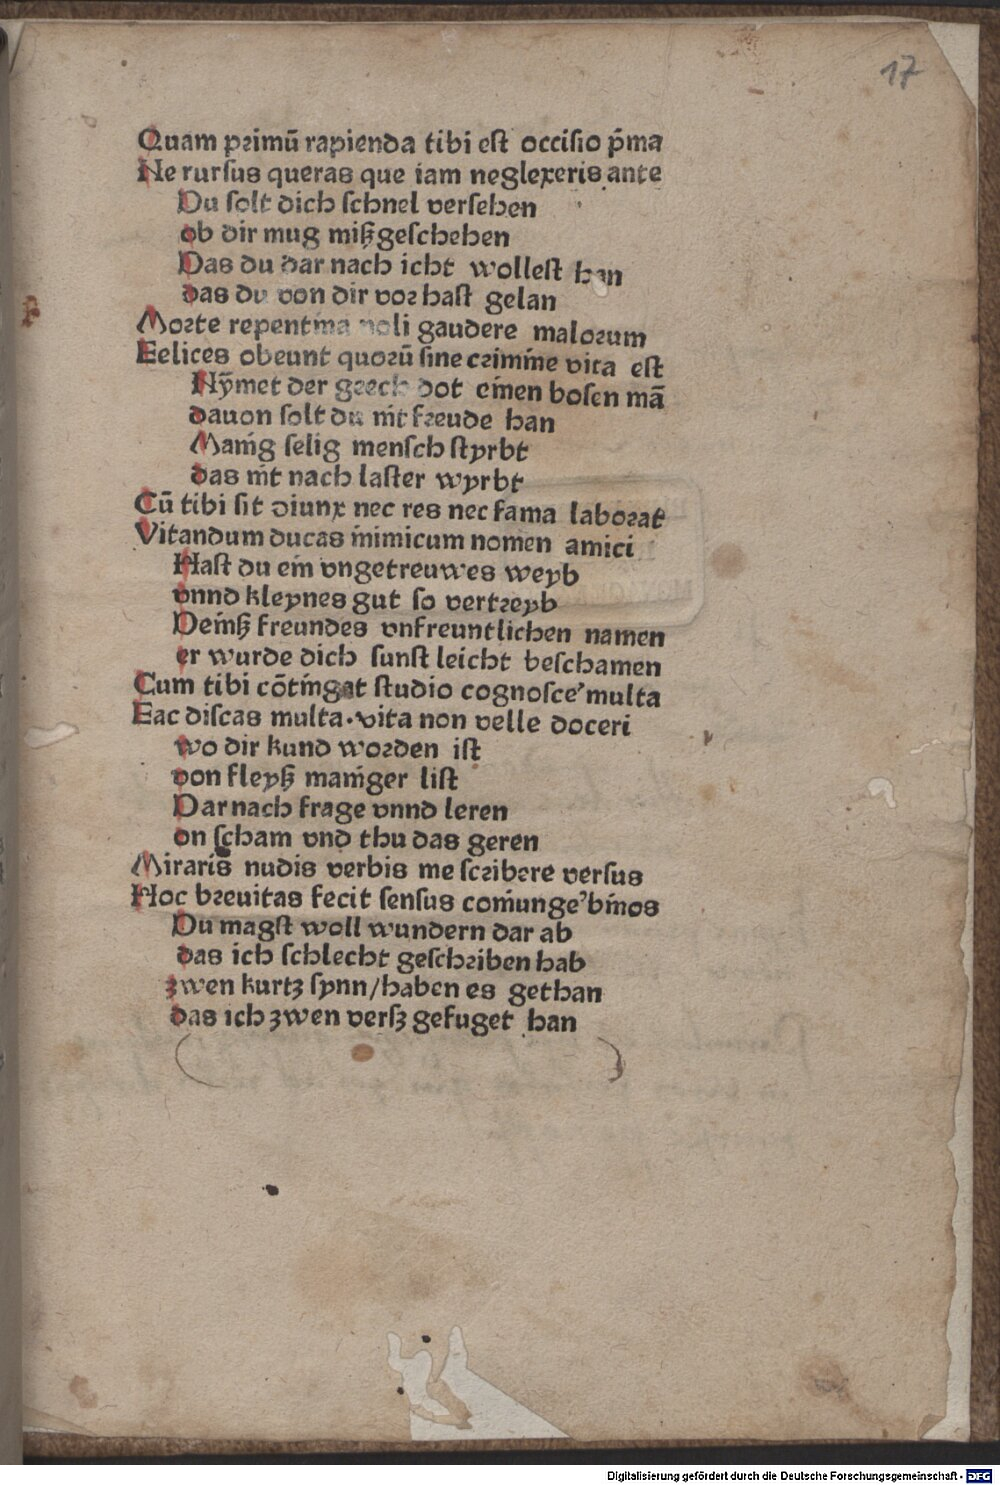 17
Quam primū rapienda tibi est occisio p̄ma
Ne rursus queras que iam neglexeris ante
Du solt dich schnel versehen
ob dir mug mißgeschehen
Das du dar nach icht wollest han
das du von dir vor hast gelan
Morte repentina noli gaudere malorum
Felices obeunt quorū sine crimine vita est
Nȳmet der geech dot einen bosen mā
dauon solt du nit freude han
Manig selig mensch styrbt
das nit nach laster wyrbt
Cū tibi sit diunx nec res nec fama laborat
Vitandum ducas inimicum nomen amici
Hast du ein vngetreuwes weyb
vnnd kleynes gut so vertreyb
Deinß freundes vnfreuntlichen namen
er wurde dich sunst leicht beschamen
Cum tibi cōtingat studio cognosce' multa
Fac discas multa·vita non velle doceri
wo dir kund worden ist
von fleyß maniger list
Dar nach frage vnnd leren
on scham vnd thu das geren
Miraris nudis verbis me scribere versus
Hoc breuitas fecit sensus coniunge' binos
Du magst woll wundern dar ab
das ich schlecht geschriben hab
zwen kurtz synn/haben es gethan
das ich zwen versz gefuget han
Digitalisierung gefördert durch die Deutsche Forschungsgemeinschaft - DFG